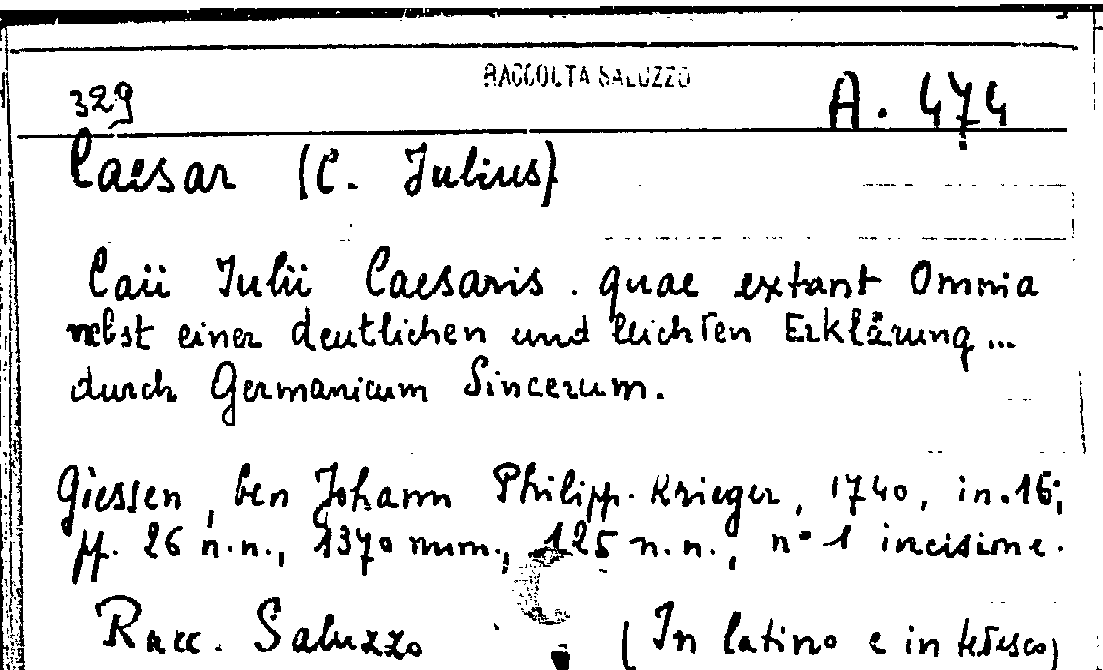 RACCOLTA SALUZZO
329 A. 474
Caesar (C. Julius)
Caii Iulii Caesaris. quae extant Omnia
nebst einer deutlichen und leichten Erklärung...
durch Germanicum Sincerum.
Giessen, ben Johann Philipp. Krieger, 1740, in.16;
pp. 26 n.n., 1370 num., 125 n.n., n° 1 incisione.
Racc. Saluzzo (In latino e in tedesco)